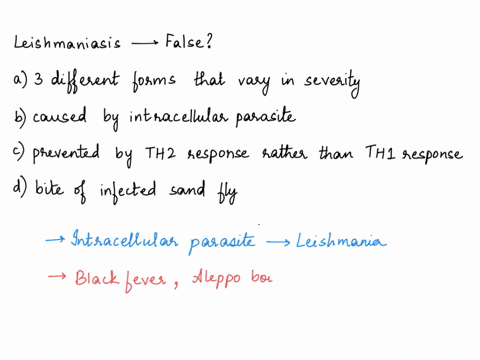 Leishmaniasis → False?
a) 3 different forms that vary in severity
b) caused by intracellular parasite
c) prevented by TH2 response rather than TH1 response
d) bite of infected sand fly
→ Intracellular parasite → Leishmania
→ Black fever, Aleppo bo